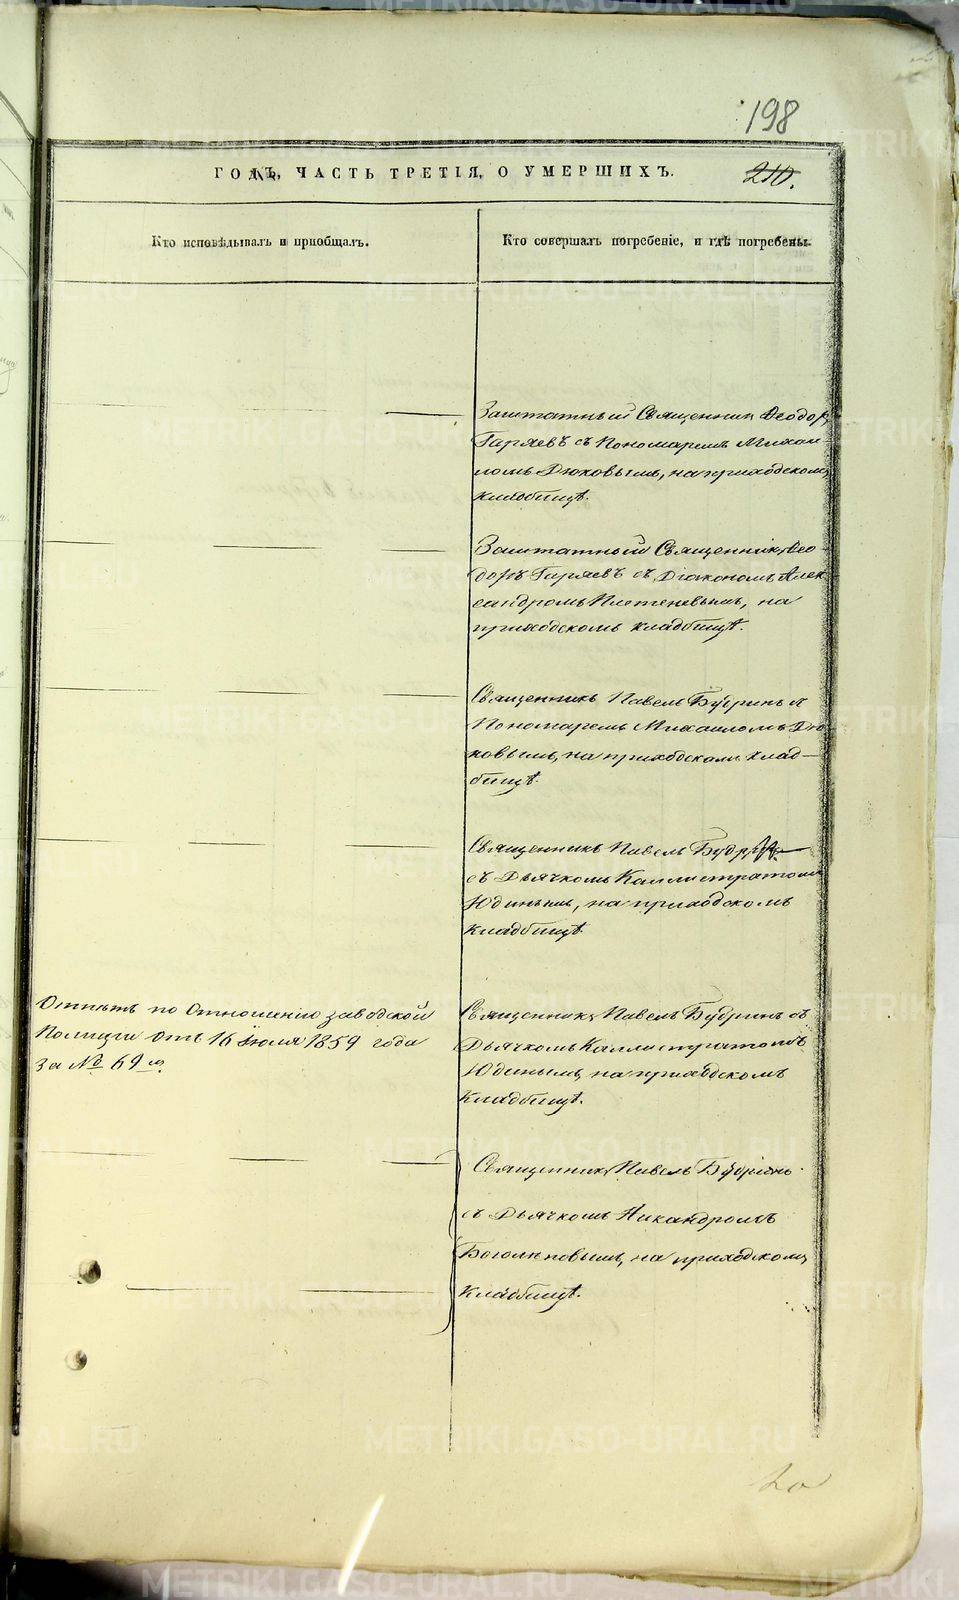 198
ГОДЪ, ЧАСТЬ ТРЕТІЯ, О УМЕРШИХЪ.
210.
Кто исповѣдывалъ и пріобщалъ.
Кто совершалъ погребеніе, и гдѣ погребены.
Заштатный Священник Ѳеодор
Гаряевъ съ Пономаремъ Михаи-
ломъ Дюковымъ, на приходском
кладбищѣ.
Заштатный Священник Ѳео-
доръ Гаряевъ съ Діакономъ Алек-
сандромъ Плетеневымъ, на
приходскомъ кладбищѣ.
Священникъ Павелъ Будринъ съ
Пономаремъ Михаиломъ Дю-
ковымъ, на приходскомъ клад-
бищѣ.
Священникъ Павелъ Будринъ
съ Дьячкомъ Каллистратомъ
Юдинымъ, на приходскомъ
кладбищѣ.
Отпѣтъ по Отношенію заводской
Полиціи отъ 16 Іюля 1859 года
за № 69
Священникъ Павелъ Будринъ съ
Дьячкомъ Каллистратомъ
Юдинымъ, на приходскомъ
кладбищѣ.
Священникъ Павелъ Будринъ
съ Дьячкомъ Никандромъ
Боголѣповымъ, на приходском
кладбищѣ.
METRIKI.GASO-URAL.RU